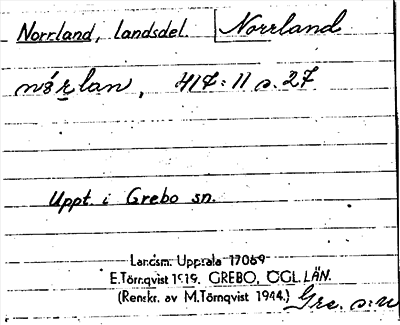 Norrland, landsdel. Norrland
nórlan, 417:11 s. 27.
Uppt. i Grebo sn.
Landsm. Uppsala 17069
E.Törnqvist 1919. GREBO, ÖGL.LÄN.
(Renskr. av M.Törnqvist 1944.) Gre. s:n